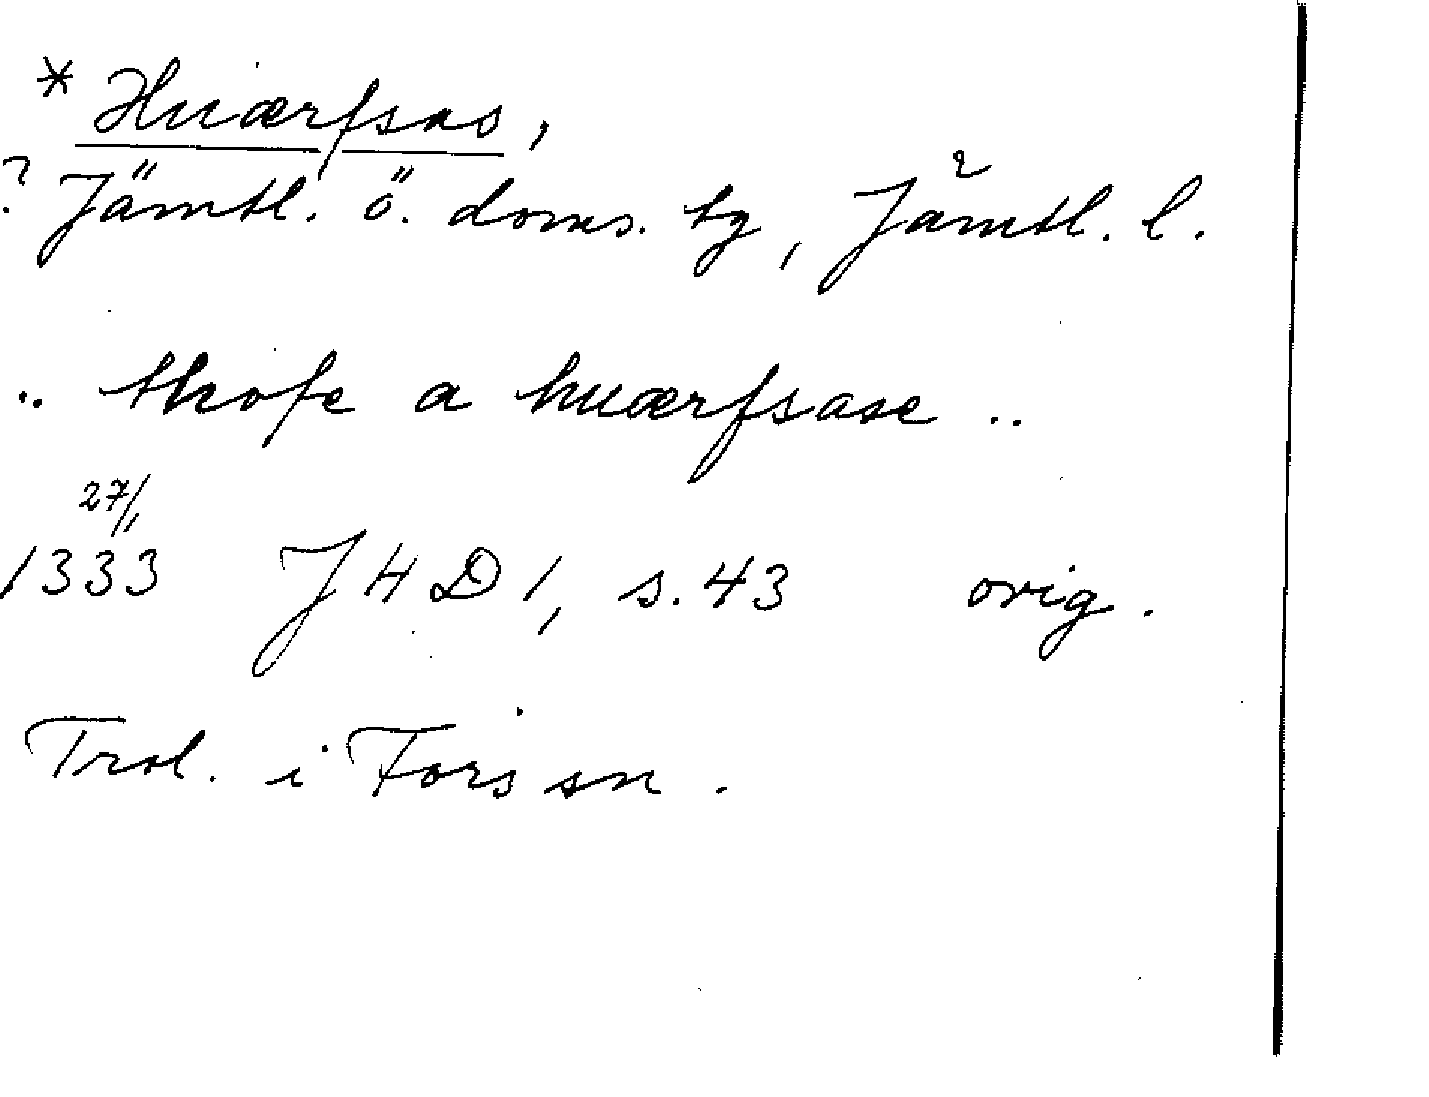 * Huærfsas,
? Jämtl. ö. doms. tg, Jämtl. l.
.. thofe a huærfsase ..
27/11
1333 JHD 1, s. 43 orig.
Trol. i Fors sn.